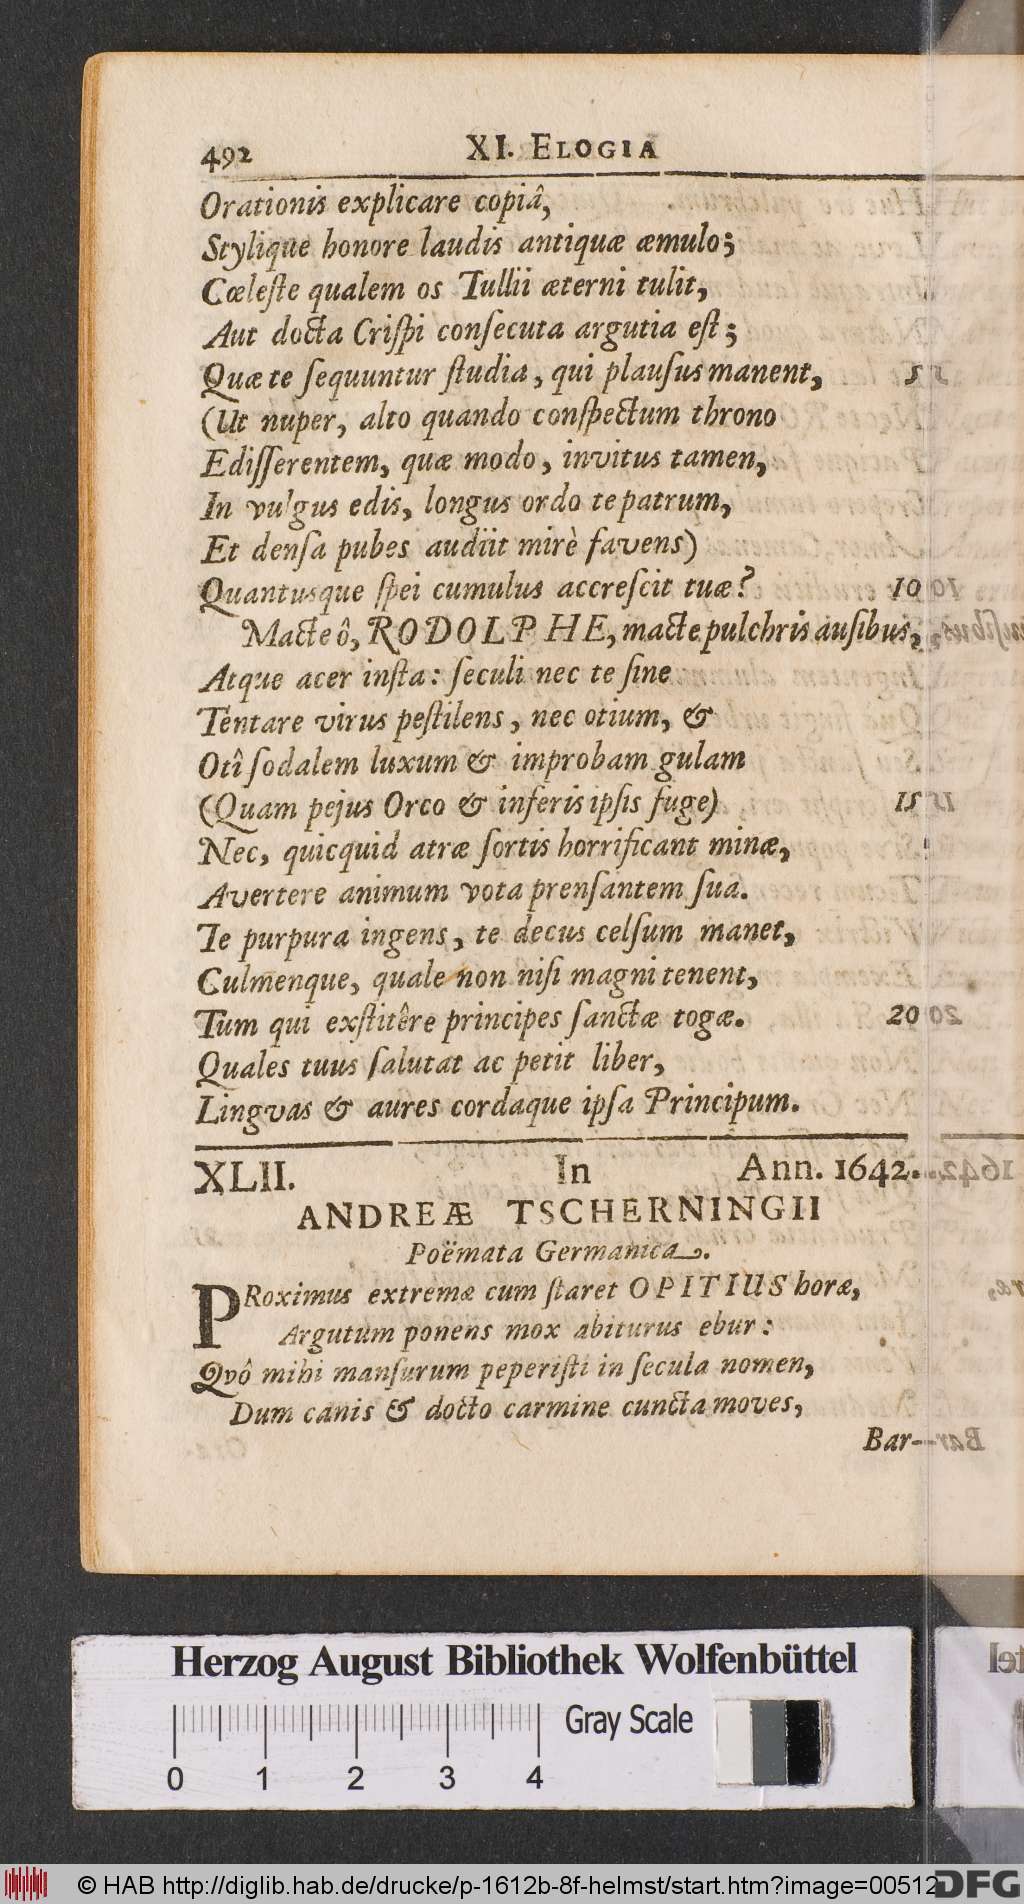 492 XI. ELOGIA
Orationis explicare copiâ,
Stylique honore laudis antiquæ æmulo;
Cœleſte qualem os Tullii æterni tulit,
Aut docta Criſpi conſecuta argutia eſt;
Quæ te ſequuntur ſtudia, qui plauſus manent, 55
(Ut nuper, alto quando conſpectum throno
Ediſſerentem, quæ modo, invitus tamen,
In vulgus edis, longus ordo te patrum,
Et denſa pubes audiit mirè favens)
Quantusque ſpei cumulus accreſcit tuæ? 10
Macte ô, RODOLPHE, macte pulchris auſibus,
Atque acer inſta: ſeculi nec te ſine
Tentare virus peſtilens, nec otium, &
Otî ſodalem luxum & improbam gulam
(Quam pejus Orco & inferis ipſis fuge) 15
Nec, quicquid atræ ſortis horrificant minæ,
Avertere animum vota prenſantem ſua.
Te purpura ingens, te decus celſum manet,
Culmenque, quale non niſi magni tenent,
Tum qui exſtitêre principes ſanctæ togæ. 20
Quales tuus ſalutat ac petit liber,
Lingvas & aures cordaque ipſa Principum.
XLII. In Ann. 1642.
ANDREÆ TSCHERNINGII
Poëmata Germanica.
PRoximus extremæ cum ſtaret OPITIUS horæ,
Argutum ponens mox abiturus ebur:
Qvô mihi manſurum peperiſti in ſecula nomen,
Dum canis & docto carmine cuncta moves,
Bar-
Herzog August Bibliothek Wolfenbüttel
Gray Scale
0 1 2 3 4
© HAB http://diglib.hab.de/drucke/p-1612b-8f-helmst/start.htm?image=00512
DFG